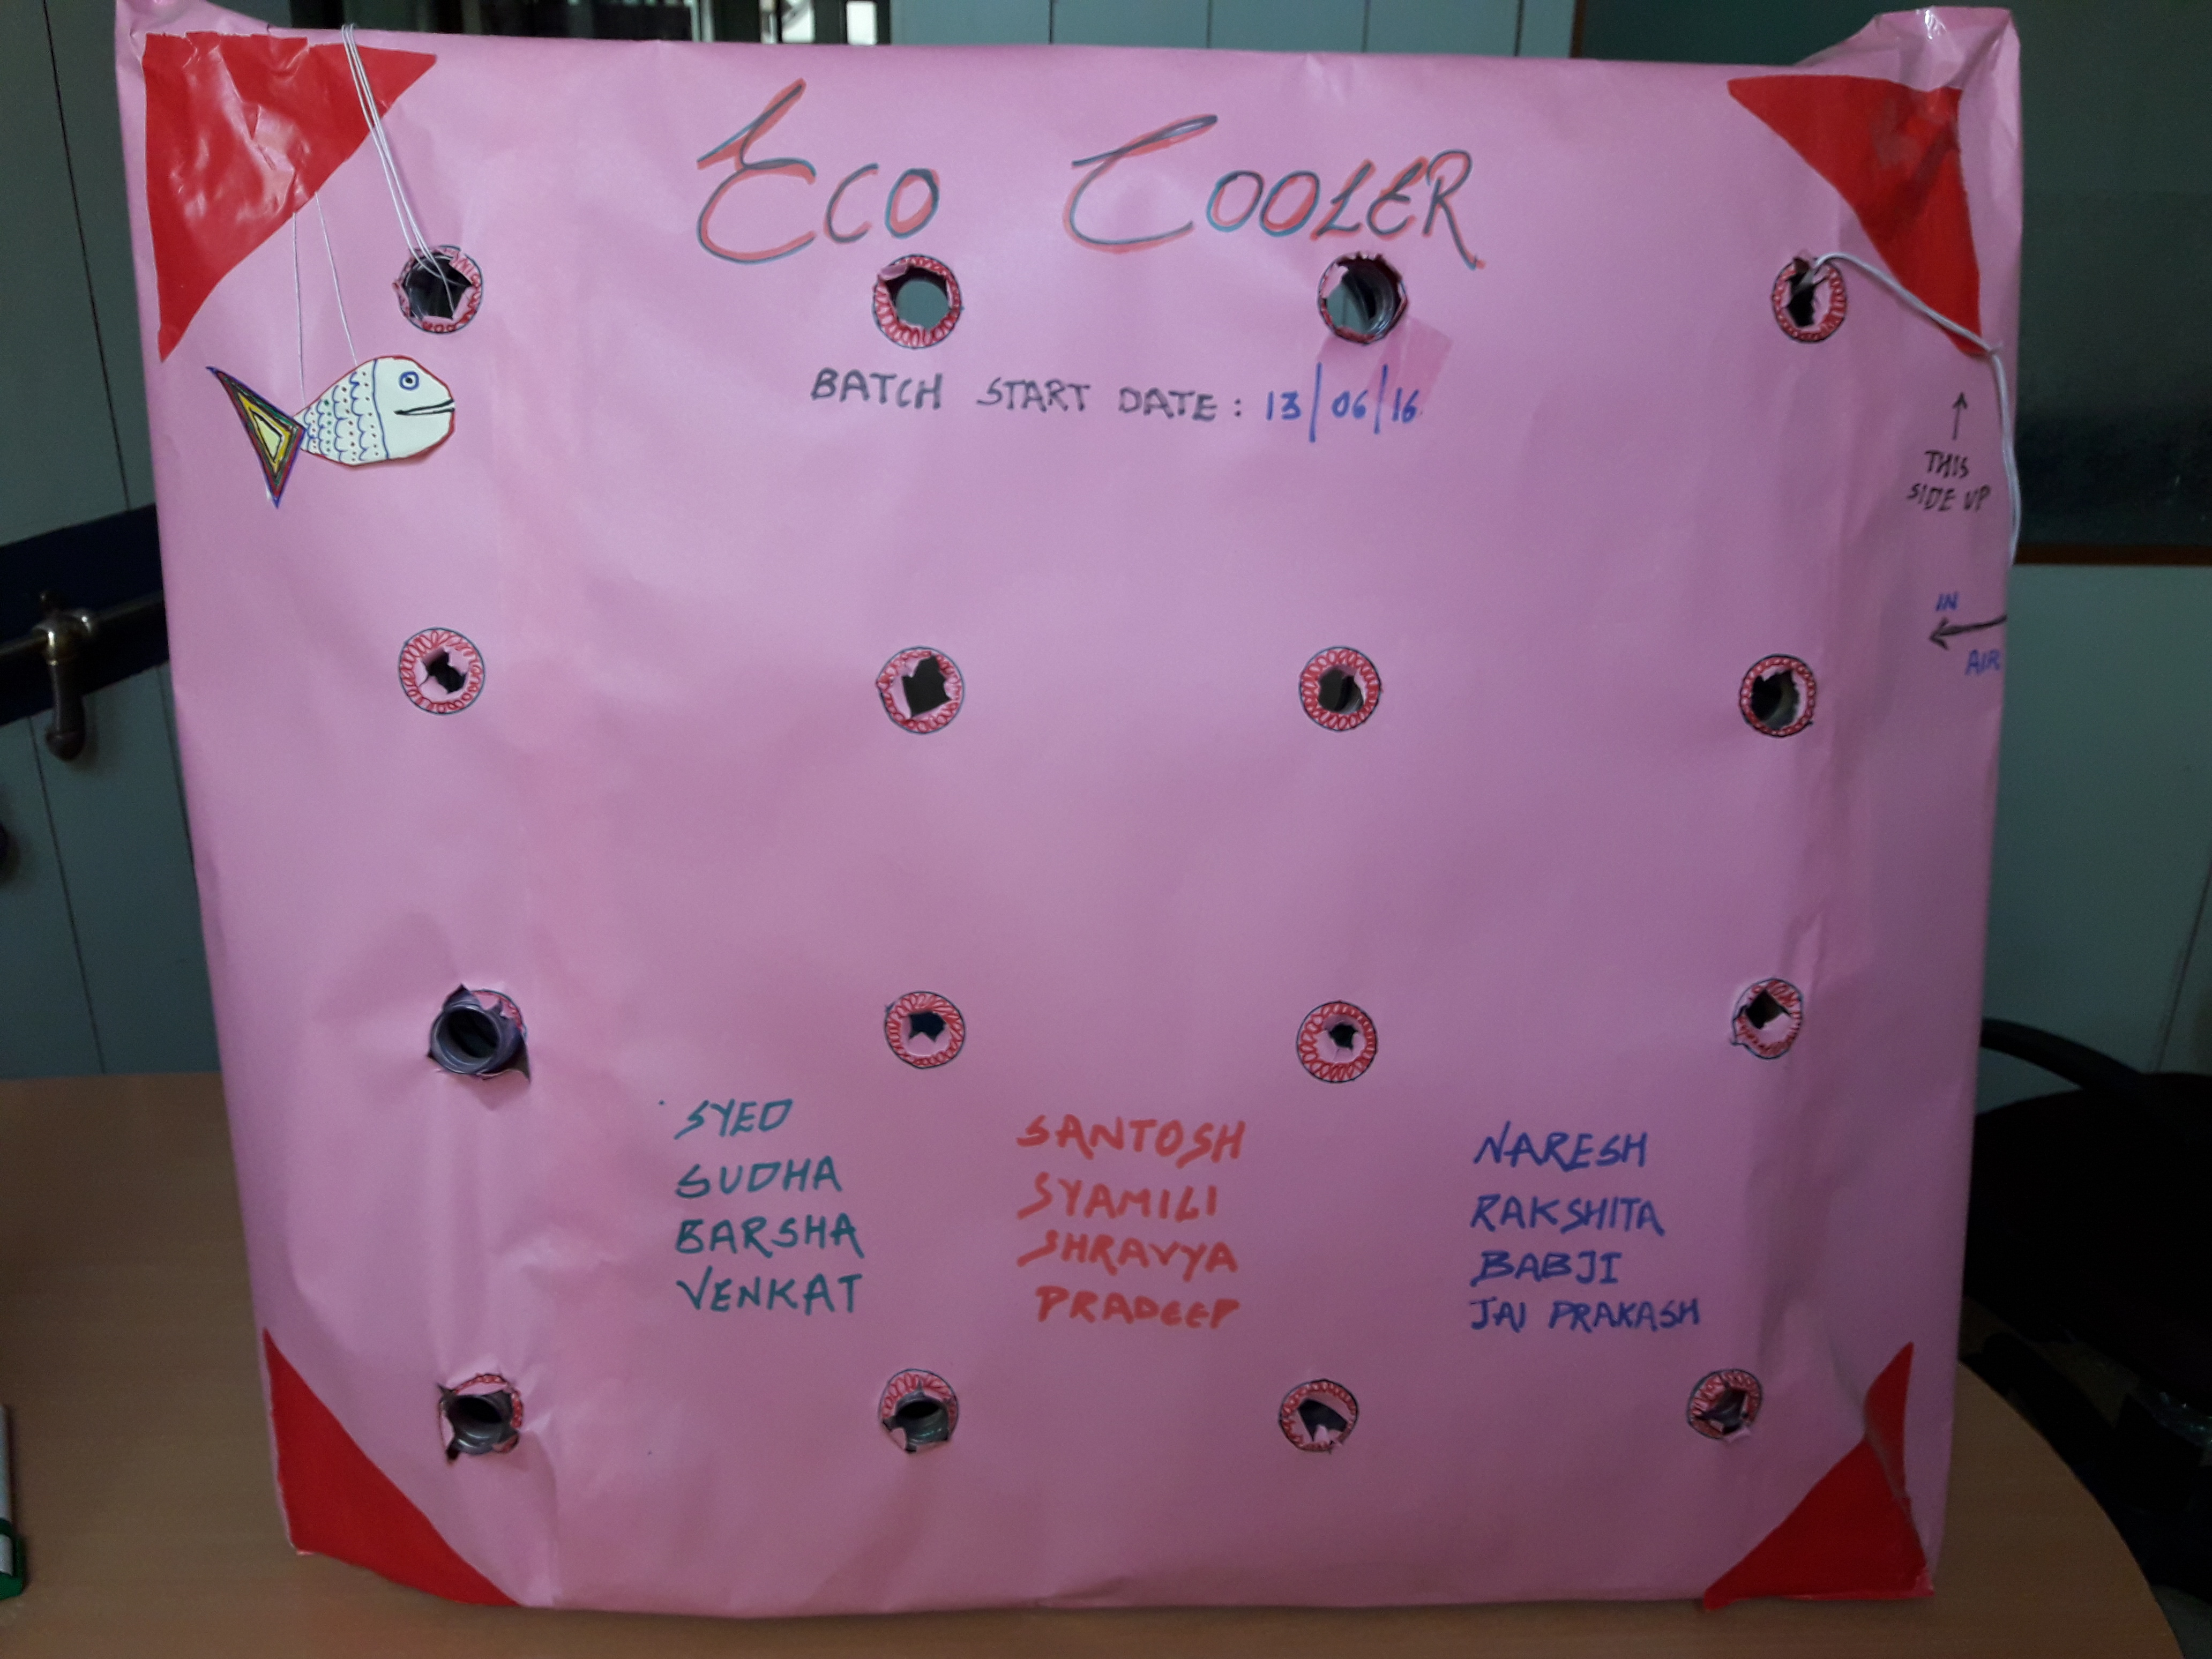 ECO COOLER
BATCH START DATE: 13/06/16
THIS
SIDE UP
IN
AIR
SYED
SUDHA
BARSHA
VENKAT
SANTOSH
SYAMILI
SHRAVYA
PRADEEP
NARESH
RAKSHITA
BABJI
JAI PRAKASH